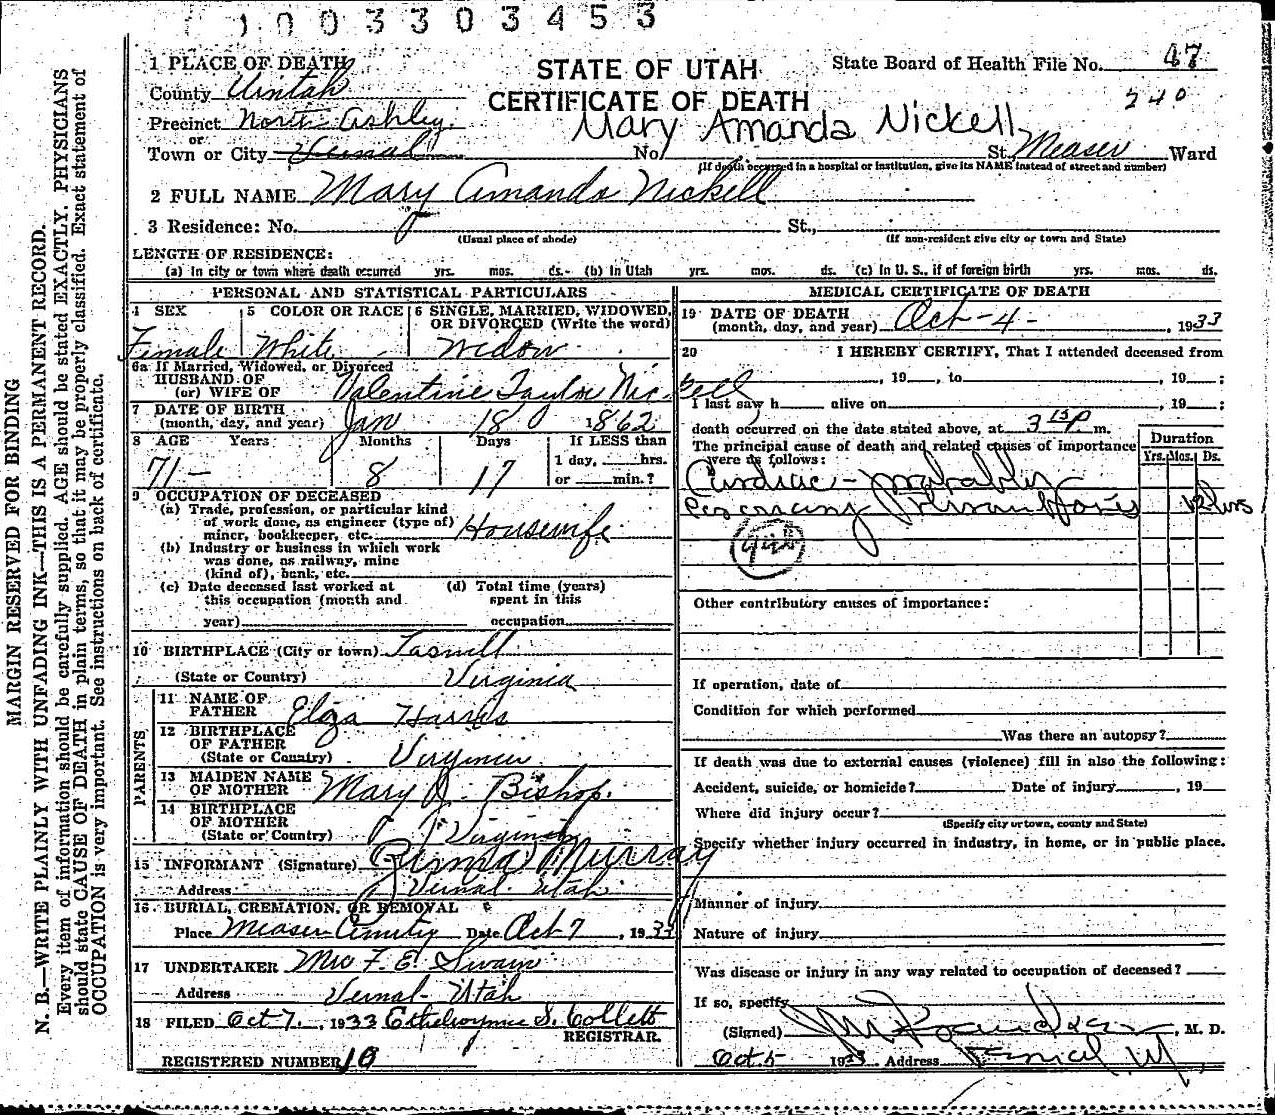 1003303453
1 PLACE OF DEATH
STATE OF UTAH
State Board of Health File No. 47
County Uintah
CERTIFICATE OF DEATH
240
Precinct North Ashley
Mary Amanda Nickell
or
Town or City Vernal No. St., Measer Ward
(If death occurred in a hospital or institution, give its NAME instead of street and number)
2 FULL NAME Mary Amanda Nickell
3 Residence: No. St.,
(Usual place of abode) (If non-resident give city or town and State)
LENGTH OF RESIDENCE:
(a) In city or town where death occurred yrs. mos. ds. (b) In Utah yrs. mos. ds. (c) In U. S., if of foreign birth yrs. mos. ds.
PERSONAL AND STATISTICAL PARTICULARS
4 SEX 5 COLOR OR RACE 6 SINGLE, MARRIED, WIDOWED,
OR DIVORCED (Write the word)
Female White Widow
6a If Married, Widowed, or Divorced
HUSBAND OF
(or) WIFE OF Valentine Taylor Nickell
7 DATE OF BIRTH
(month, day, and year) Jan 18 1862
8 AGE Years Months Days If LESS than
1 day, hrs.
71 - 8 17 or min.?
9 OCCUPATION OF DECEASED
(a) Trade, profession, or particular kind
of work done, as engineer (type of)
miner, bookkeeper, etc. Housewife
(b) Industry or business in which work
was done, as railway, mine
(kind of), bank, etc.
(c) Date deceased last worked at
this occupation (month and
year)
(d) Total time (years)
spent in this
occupation
10 BIRTHPLACE (City or town) Taswell
(State or Country) Virginia
PARENTS
11 NAME OF
FATHER Eliza Harris
12 BIRTHPLACE
OF FATHER
(State or Country) Virginia
13 MAIDEN NAME
OF MOTHER Mary J. Bishop.
14 BIRTHPLACE
OF MOTHER
(State or Country) Virginia
15 INFORMANT (Signature) Murray
Address Vernal Utah
16 BURIAL, CREMATION, OR REMOVAL
Place Measer Date Oct 7, 1933
17 UNDERTAKER Mrs F. E. Swain
Address Vernal - Utah
18 FILED Oct 7, 1933 S. Collett
REGISTRAR.
REGISTERED NUMBER 10
MEDICAL CERTIFICATE OF DEATH
19 DATE OF DEATH
(month, day, and year) Oct - 4 - , 1933
20 I HEREBY CERTIFY, That I attended deceased from
, 19 , to , 19 ;
I last saw h alive on , 19 ;
death occurred on the date stated above, at 3 15 P. m.
The principal cause of death and related causes of importance
were as follows:
Duration
Yrs. Mos. Ds.
Cardiac - probably
12 hrs
Other contributory causes of importance:
If operation, date of
Condition for which performed
Was there an autopsy?
If death was due to external causes (violence) fill in also the following:
Accident, suicide, or homicide? Date of injury , 19
Where did injury occur?
(Specify city or town, county and State)
Specify whether injury occurred in industry, in home, or in public place.
Manner of injury
Nature of injury
Was disease or injury in any way related to occupation of deceased?
If so, specify
(Signed) , M. D.
Oct 5 1933 Address
MARGIN RESERVED FOR BINDING
N. B.—WRITE PLAINLY WITH UNFADING INK—THIS IS A PERMANENT RECORD.
Every item of information should be carefully supplied. AGE should be stated EXACTLY. PHYSICIANS
should state CAUSE OF DEATH in plain terms, so that it may be properly classified. Exact statement of
OCCUPATION is very important. See instructions on back of certificate.